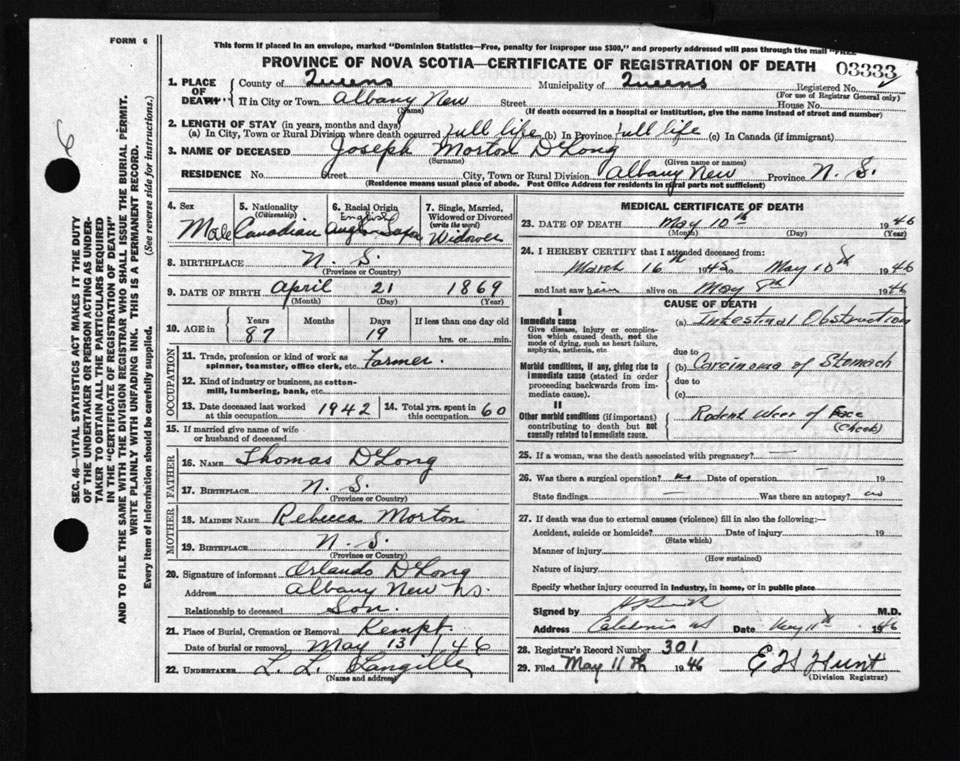 FORM 6
This form if placed in an envelope, marked "Dominion Statistics—Free, penalty for improper use $300," and properly addressed will pass through the mail "FREE
PROVINCE OF NOVA SCOTIA—CERTIFICATE OF REGISTRATION OF DEATH 03333
1. PLACE OF DEATH County of Queens Municipality of Queens Registered No.
(For use of Registrar General only)
If in City or Town Albany New Street House No.
(Name) (If death occurred in a hospital or institution, give the name instead of street and number)
2. LENGTH OF STAY (in years, months and days)
(a) In City, Town or Rural Division where death occurred full life (b) In Province full life (c) In Canada (if immigrant)
3. NAME OF DECEASED Joseph Morton DLong
(Surname) (Given name or names)
RESIDENCE No. Street City, Town or Rural Division Albany New Province N. S.
(Residence means usual place of abode. Post Office Address for residents in rural parts not sufficient)
4. Sex Male
5. Nationality (Citizenship) Canadian
6. Racial Origin English Anglo
7. Single, Married, Widowed or Divorced (write the word) Widower
8. BIRTHPLACE N. S.
(Province or Country)
9. DATE OF BIRTH April 21 1869
(Month) (Day) (Year)
10. AGE in Years 87 Months Days 19 If less than one day old hrs. or min.
OCCUPATION
11. Trade, profession or kind of work as spinner, teamster, office clerk, etc. Farmer.
12. Kind of industry or business, as cotton-mill, lumbering, bank, etc.
13. Date deceased last worked at this occupation 1942 14. Total yrs. spent in this occupation 60
15. If married give name of wife or husband of deceased
FATHER
16. NAME Thomas DLong
17. BIRTHPLACE N. S.
(Province or Country)
MOTHER
18. MAIDEN NAME Rebecca Morton
19. BIRTHPLACE N. S.
(Province or Country)
20. Signature of informant Orlando DLong
Address Albany New NS.
Relationship to deceased Son.
21. Place of Burial, Cremation or Removal Kempt
Date of burial or removal May 13 1946
22. UNDERTAKER L. L. Langille
(Name and address)
MEDICAL CERTIFICATE OF DEATH
23. DATE OF DEATH May 10th 1946
(Month) (Day) (Year)
24. I HEREBY CERTIFY that I attended deceased from:
March 16th 1945 to May 10th 1946
and last saw him alive on May 8th 1946
CAUSE OF DEATH
I
Immediate cause (a) Intestinal Obstruction
Give disease, injury or complication which caused death, not the mode of dying, such as heart failure, asphyxia, asthenia, etc.
due to
Morbid conditions, if any, giving rise to immediate cause (stated in order proceeding backwards from immediate cause). (b) Carcinoma of Stomach
due to
(c)
II
Other morbid conditions (if important) contributing to death but not causally related to immediate cause. Rodent Ulcer of Face (Cheek)
25. If a woman, was the death associated with pregnancy? —
26. Was there a surgical operation? no Date of operation 19
State findings — Was there an autopsy? no
27. If death was due to external causes (violence) fill in also the following:—
Accident, suicide or homicide? Date of injury 19
(State which)
Manner of injury
(How sustained)
Nature of injury
Specify whether injury occurred in industry, in home, or in public place
Signed by M.D.
Address Caledonia NS Date May 11th 1946
28. Registrar's Record Number 301
29. Filed May 11th 1946 E H Hunt
(Division Registrar)
SEC. 46—VITAL STATISTICS ACT MAKES IT THE DUTY
OF THE UNDERTAKER OR PERSON ACTING AS UNDER-
TAKER TO OBTAIN ALL THE PARTICULARS REQUIRED
IN THE "CERTIFICATE OF REGISTRATION OF DEATH"
AND TO FILE THE SAME WITH THE DIVISION REGISTRAR WHO SHALL ISSUE THE BURIAL PERMIT.
WRITE PLAINLY WITH UNFADING INK. THIS IS A PERMANENT RECORD.
Every item of information should be carefully supplied. (See reverse side for instructions.)
6